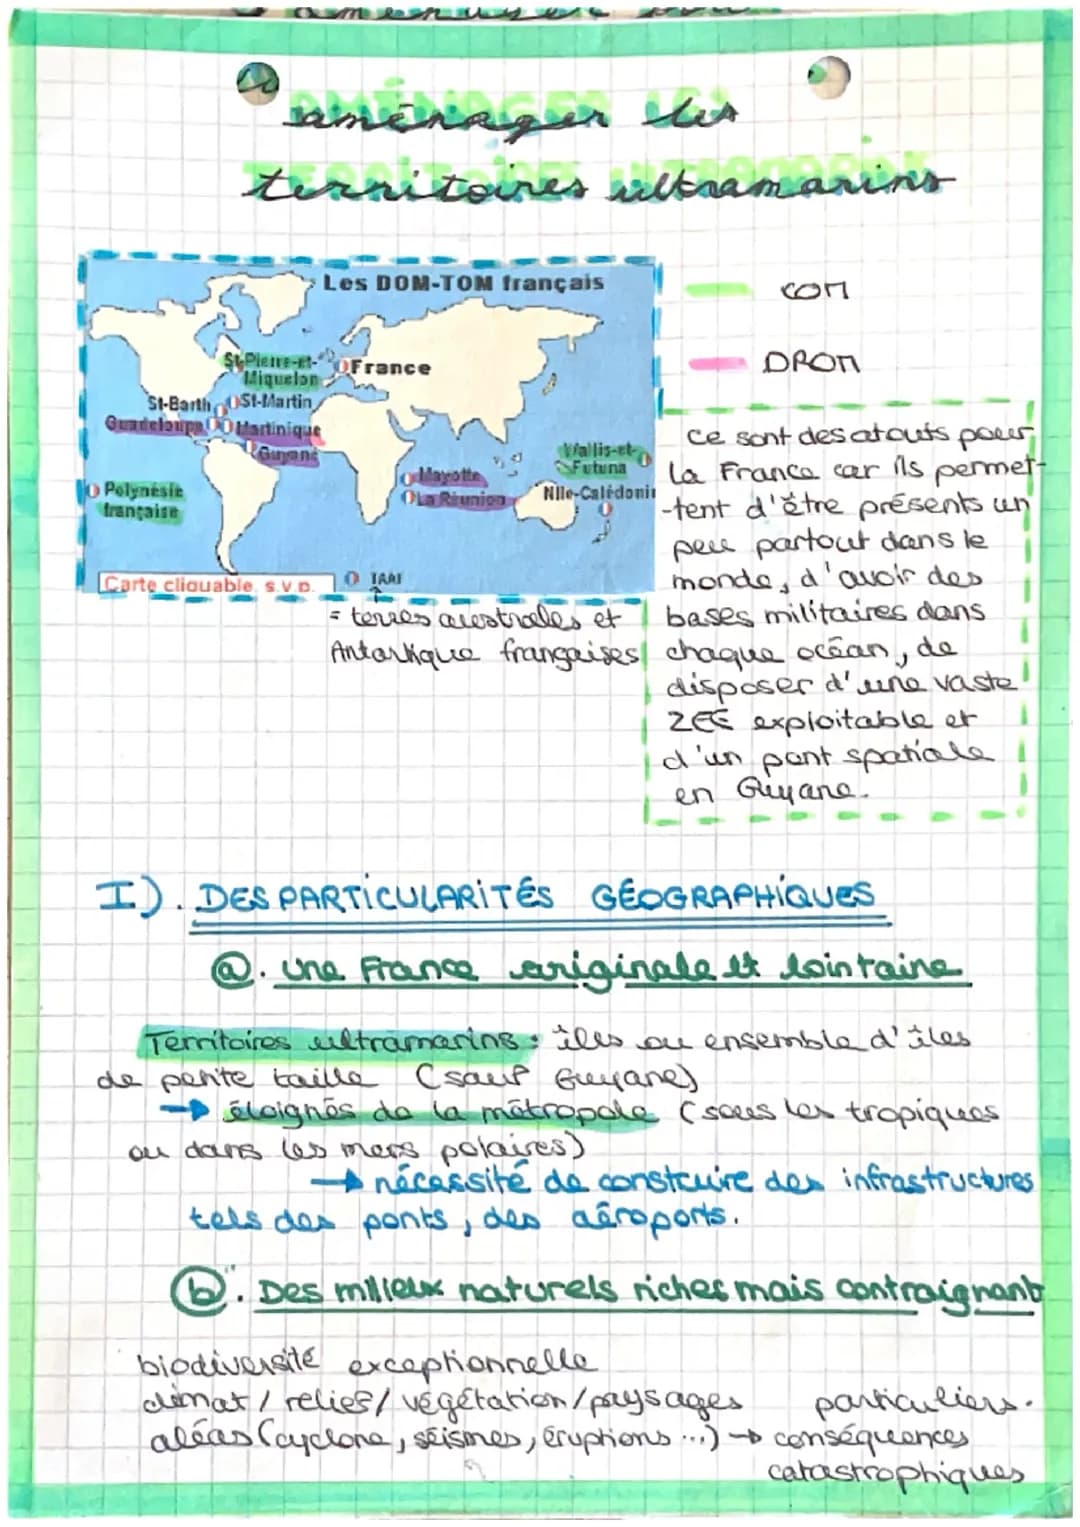 aménager les
territoires ultramarins
Les DOM-TOM français
St-Pierre-et-
Miquelon
France
St-Barth
St-Martin
Guadeloupe
Martinique
Guyane
Mayotte
La Réunion
Wallis-et-
Futuna
Nlle-Calédonie
Polynésie
française
TAAF
Carte cliquable, s.v.p.
= terres australes et
Antartique françaises
COM
DROM
Ce sont des atouts pour
la France car ils permet-
-tent d'être présents un
peu partout dans le
monde, d'avoir des
bases militaires dans
chaque océan, de
disposer d'une vaste
ZEE exploitable et
d'un port spatiale
en Guyane.
I). DES PARTICULARITÉS GÉOGRAPHIQUES
a. Une France originale et lointaine
Territoires ultramarins : îles ou ensemble d'îles
de petite taille (sauf Guyane)
→ éloignés de la métropole (sous les tropiques
ou dans les mers polaires)
→ nécessité de construire des infrastructures
tels des ponts, des aéroports.
b. Des milieux naturels riches mais contraignant
biodiversité exceptionnelle
climat / relief / végétation / paysages particuliers.
aléas (cyclone, séismes, éruptions ...) → conséquences
catastrophiques